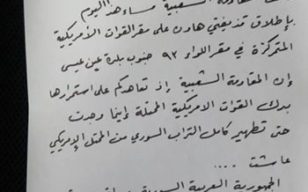 الشعبية مساء هذا اليوم
بإطلاق قذيفتي هاون على مقر القوات الأمريكية
المتمركزة في مقر اللواء ٩٣ جنوب بلدة عين عيسى
إن المقاومة الشعبية إذ تعاهدكم على استمرارها
بدك القوات الامريكية المحتلة أينما وجدت
حتى تطهير كامل التراب السوري من المحتل الامريكي
عاشت ....
الجمهورية العربية السورية